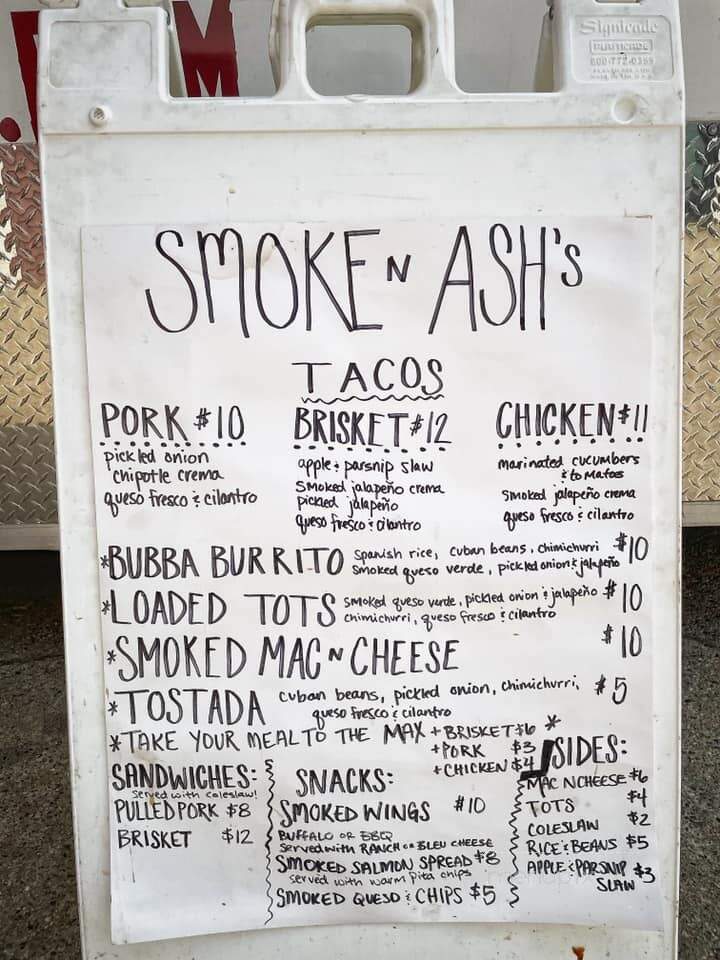 M
Signicade
PLASTICADE
800-772-0355
SMOKE N ASH'S
TACOS
PORK $10
pickled onion
chipotle crema
queso fresco & cilantro
BRISKET $12
apple & parsnip slaw
smoked jalapeño crema
pickled jalapeño
queso fresco & cilantro
CHICKEN $11
marinated cucumbers
& tomatoes
smoked jalapeño crema
queso fresco & cilantro
*BUBBA BURRITO spanish rice, cuban beans, chimichurri $10
smoked queso verde, pickled onion & jalapeño
*LOADED TOTS smoked queso verde, pickled onion & jalapeño $10
chimichurri, queso fresco & cilantro
*SMOKED MAC N CHEESE $10
*TOSTADA cuban beans, pickled onion, chimichurri, $5
queso fresco & cilantro
*TAKE YOUR MEAL TO THE MAX + BRISKET $6 *
+ PORK $3
+ CHICKEN $4
SANDWICHES:
served with coleslaw!
PULLED PORK $8
BRISKET $12
SNACKS:
SMOKED WINGS $10
BUFFALO OR BBQ
served with RANCH OR BLEU CHEESE
SMOKED SALMON SPREAD $8
served with warm pita chips
SMOKED QUESO & CHIPS $5
SIDES:
MAC N CHEESE $6
TOTS $4
COLESLAW $2
RICE & BEANS $5
APPLE & PARSNIP SLAW $3